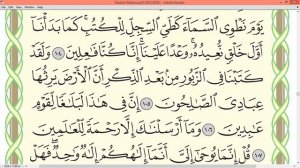 Mushaf Madina.pdf (SECURED) - Adobe Reader
يَوْمَ نَطْوِى ٱلسَّمَآءَ كَطَىِّ ٱلسِّجِلِّ لِلْكُتُبِ كَمَا بَدَأْنَآ
أَوَّلَ خَلْقٍ نُّعِيدُهُۥ وَعْدًا عَلَيْنَآ إِنَّا كُنَّا فَٰعِلِينَ ١٠٤ وَلَقَدْ
كَتَبْنَا فِى ٱلزَّبُورِ مِنۢ بَعْدِ ٱلذِّكْرِ أَنَّ ٱلْأَرْضَ يَرِثُهَا
عِبَادِىَ ٱلصَّٰلِحُونَ ١٠٥ إِنَّ فِى هَٰذَا لَبَلَٰغًا لِّقَوْمٍ
عَٰبِدِينَ ١٠٦ وَمَآ أَرْسَلْنَٰكَ إِلَّا رَحْمَةً لِّلْعَٰلَمِينَ
١٠٧ قُلْ إِنَّمَا يُوحَىٰٓ إِلَىَّ أَنَّمَآ إِلَٰهُكُمْ إِلَٰهٌ وَٰحِدٌ فَهَلْ